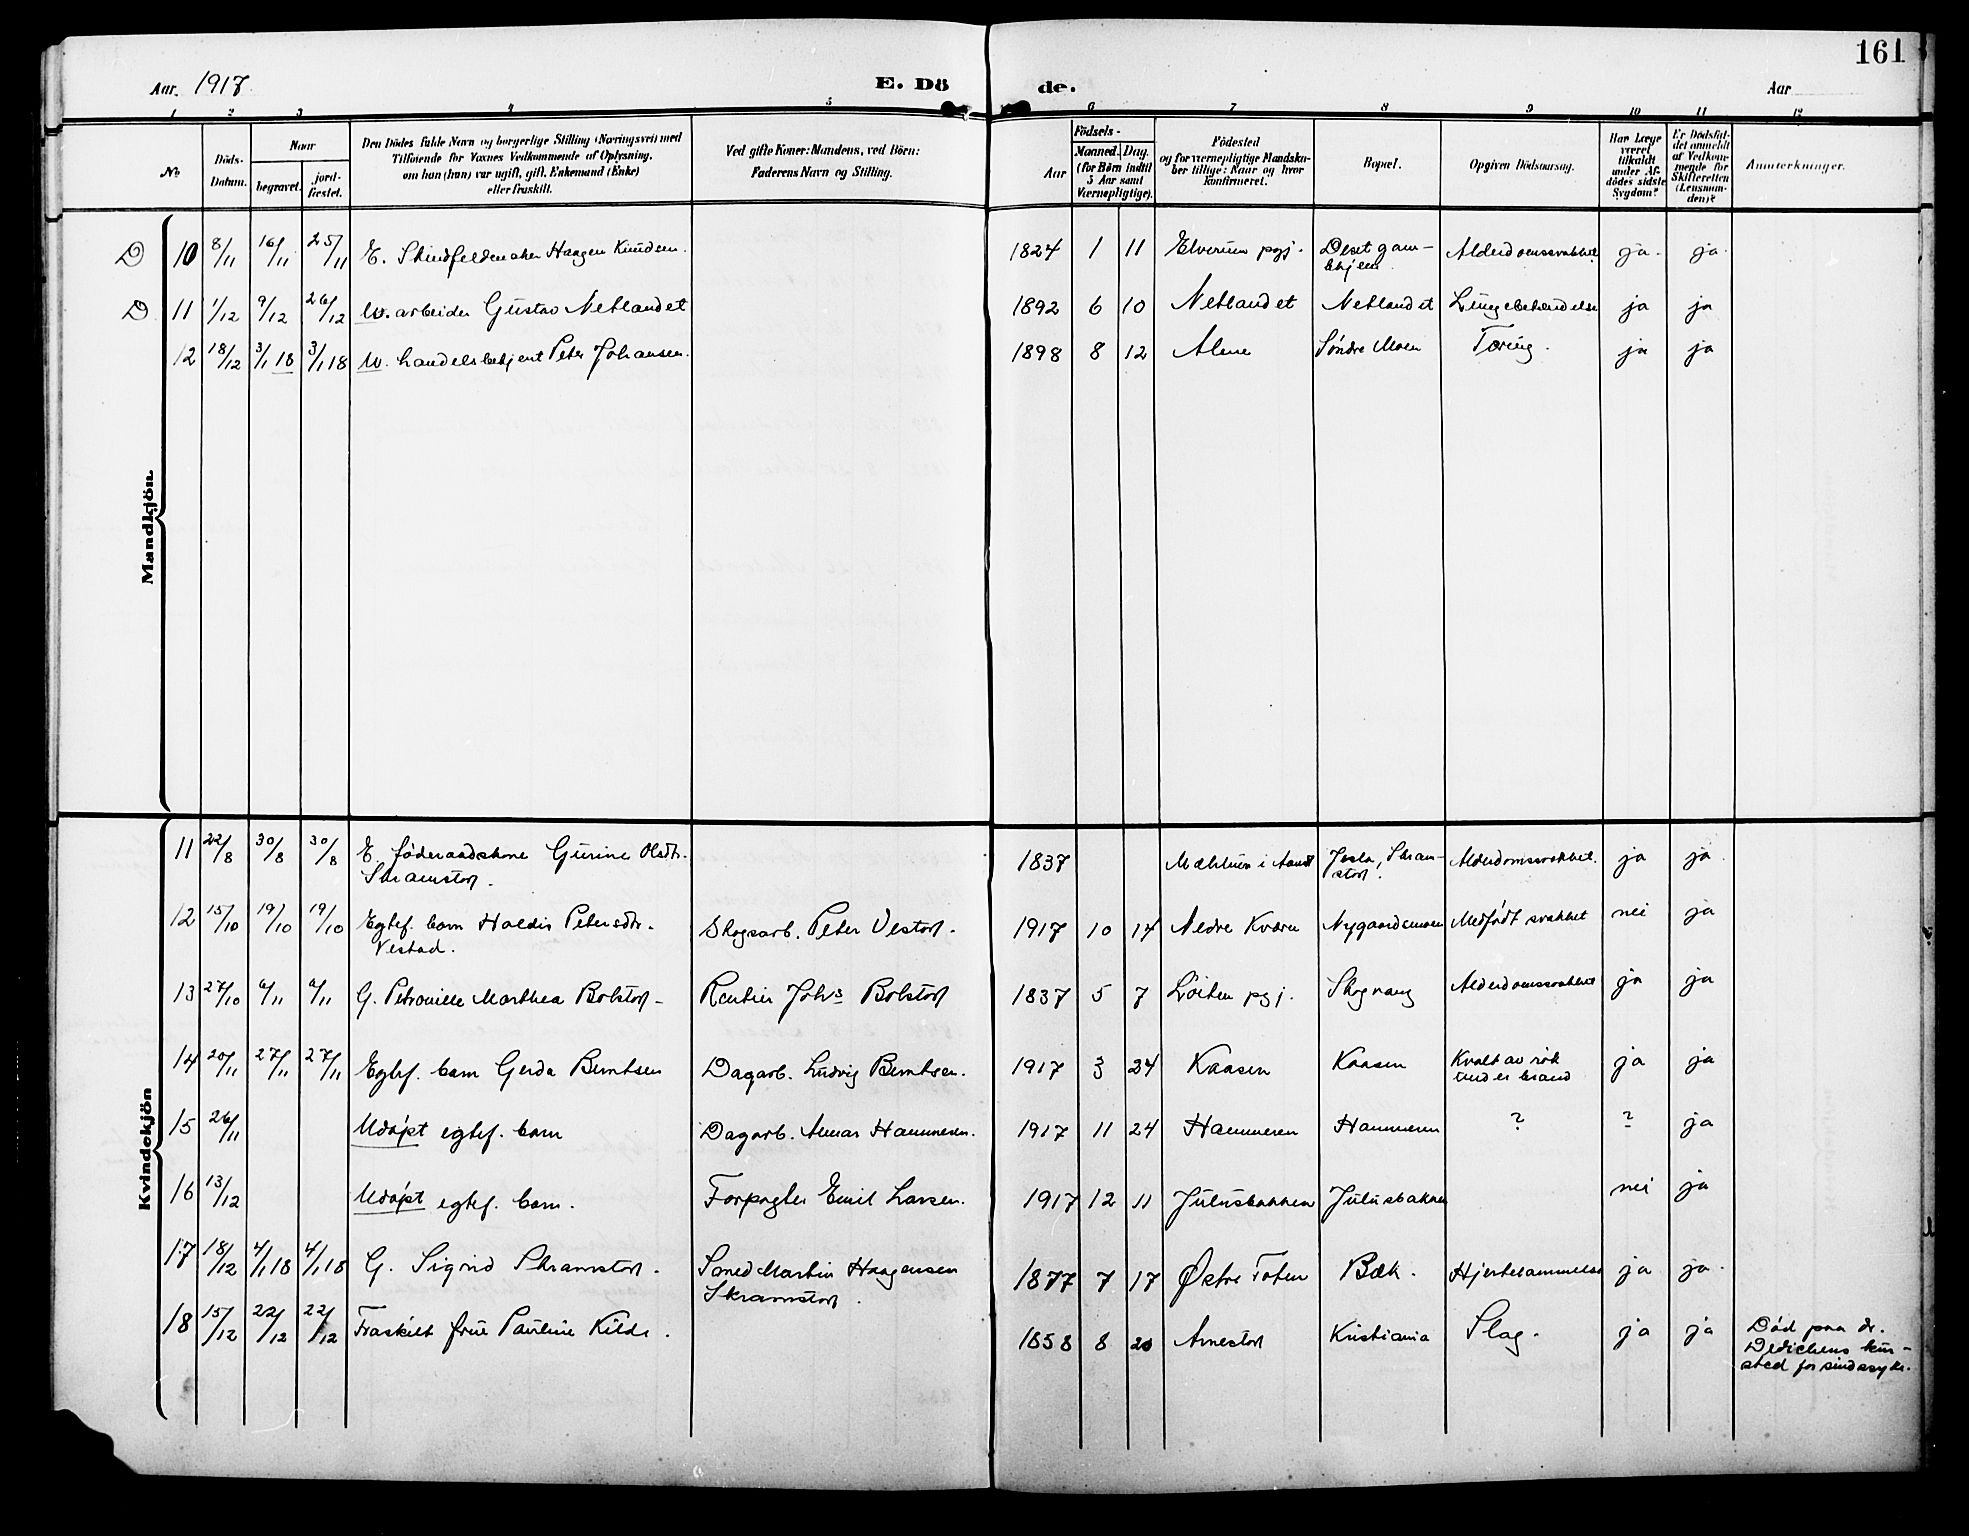 161
Aar. 1917
E. Dö de.
Aar
1 2 3 4 5 6 7 8 9 10 11 12
No
Döds-Datum.
Naar
begravet.
jord-fæstet.
Den Dödes fulde Navn og borgerlige Stilling (Næringsvei) med
Tilföiende for Voxnes Vedkommende af Oplysning,
om han (hun) var ugift, gift, Enkemand (Enke)
eller fraskilt.
Ved gifte Koner: Mandens, ved Börn:
Faderens Navn og Stilling.
Aar
Födsels-
Maaned. Dag.
(for Børn indtil
5 Aar samt
Værnepligtige).
Födested
og for værnepligtige Mandska-
ber tillige: Naar og hvor
konfirmeret.
Bopæl.
Opgiven Dödsaarsag.
Har Læge
været
tilkaldt
under Af-
dödes sidste
Sygdom?
Er Dödsfal-
det anmeldt
af Vedkom-
mende for
Skifteretten
(Lensman-
den)?
Anmærkninger.
Mandkjön.
D 10 8/11 16/11 25/11 E. Skindfeldmaker Haagen Knudsen. 1824 1 11 Elverum pgj. Deset gam-
lehjem. Alderdomssvakhet ja. ja.
D 11 1/12 9/12 26/12 U. arbeider Gustav Netlandet 1892 6 10 Netlandet Netlandet Lungebetændelse ja ja
12 18/12 3/1 18 3/1 18 U. handelsbetjent Peter Johansen. 1898 8 12 Alme Söndre Moen Tæring. ja ja
Kvindekjön
11 22/8 30/8 30/8 E. föderaadskone Gurine Olsdtr. 1837 Mæhlum i Aamot Jøsla, Skram-
Skramstad. stad. Alderdomssvakhet. ja ja.
12 15/10 19/10 19/10 Egtef. barn Haldis Petersdtr. Skogsarb. Peter Vestad. 1917 10 14 Nedre Kværn Nygaardsmoen Medfödt svakhet nei ja
Vestad.
13 27/10 6/11 6/11 G. Petronille Marthea Bolstad Rentier Johs Bolstad 1837 5 7 Löiten pgj. Skogvang Alderdomssvakhet ja ja
14 20/11 27/11 27/11 Egtef. barn Gerda Berntsen Dagarb. Ludvig Berntsen. 1917 3 24 Kaasen Kaasen Kvalt av rök
under brand ja ja
15 26/11 Udöpt egtef. barn Dagarb. Almar Hammeren. 1917 11 24 Hammeren Hammeren ? ? ja
16 13/12 Udöpt egtef. barn. Forpagter Emil Larsen. 1917 12 11 Julusbakken Julusbakken nei ja
17 18/12 4/1 18 4/1 18 G. Sigrid Skramstad. Smed Martin Haagensen
Skramstad. 1877 7 17 Østre Toten Bæk. Hjertelammelse ja ja.
18 15/12 22/12 22/12 Fraskilt frue Pauline Kilde. 1858 8 20 Arnestad Kristiania Slag. ja ja Död paa dr.
Dedichens kur-
sted for sindssyke.